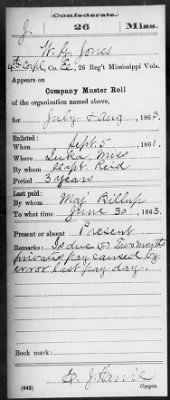 Confederate.
J. 26 Miss.
W. H. Jones
4th Corpl, Co. E, 26 Reg't Mississippi Vols.
Appears on
Company Muster Roll
of the organization named above,
for July & Aug, 1863.
Enlisted:
When Sept. 5, 1861.
Where Iuka, Miss
By whom Capt. Reid
Period 3 years
Last paid:
By whom Maj Billup
To what time June 30, 1863.
Present or absent Present
Remarks: Is due $7 Two months
privates pay caused by
error last pay day.
Book mark:
(642) Copyist.